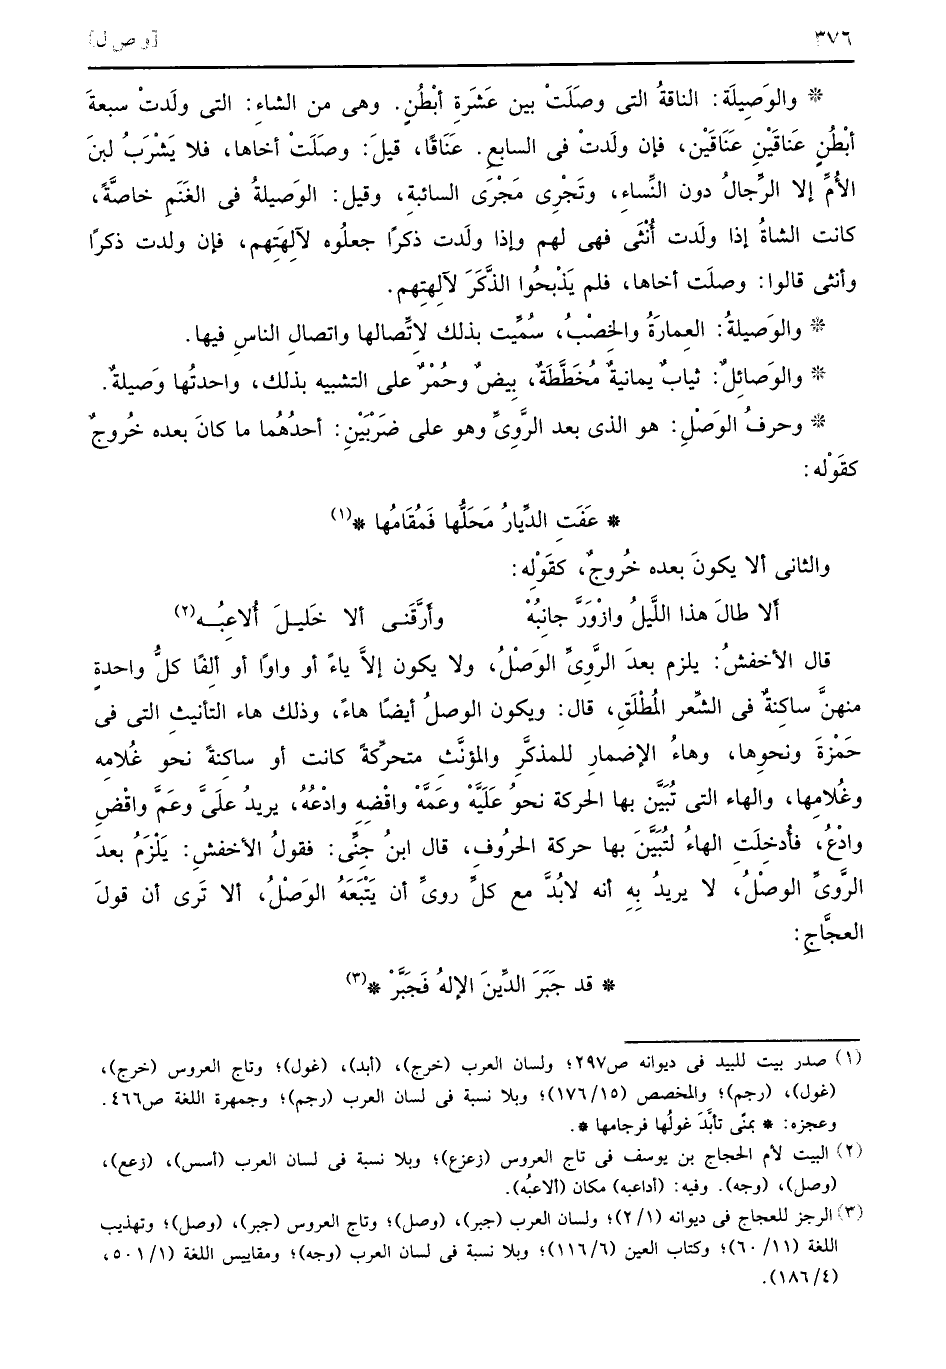 ٣٧٦ [و ص ل]
* والوَصِيلَة: الناقةُ التى وصَلَتْ بين عَشَرَةِ أبْطُنٍ. وهى من الشاء: التى ولَدتْ سبعةَ
أبْطُنٍ عَناقَيْنِ عَنَاقَيْن، فإن ولَدتْ فى السابع. عَنَاقًا، قيلَ: وصلَتْ أخاها، فلا يَشْرَبُ لبنَ
الأُمِّ إلا الرِّجالُ دون النِّساء، وتَجْرِى مَجْرَى السائبةِ، وقيل: الوَصيلةُ فى الغَنَمِ خاصَّةً،
كانت الشاةُ إذا ولَدت أُنْثَى فهى لهم وإذا ولَدت ذكرًا جعلُوه لآلهتِهم، فإن ولدت ذكرًا
وأنثى قالوا: وصلَت أخاها، فلم يَذْبحُوا الذَّكَرَ لآلِهتِهم.
* والوَصيلةُ: العمارَةُ والخِصْبُ، سُمِّيت بذلك لاتِّصالها واتصالِ الناسِ فيها.
* والوَصائلُ: ثيابٌ يمانيةٌ مُخَطَّطَةٌ، بِيضٌ وحُمْرٌ على التشبيه بذلك، واحدتُها وَصيلةٌ.
* وحرفُ الوَصْلِ: هو الذى بعد الرَّوِىِّ وهو على ضَرْبَيْنِ: أحدُهُما ما كانَ بعده خُروجٌ
كقَوْله:
* عَفَتِ الدِّيارُ مَحَلُّها فَمُقَامُها *(١)
والثانى ألا يكونَ بعده خُروجٌ، كقَوْلِه:
ألا طالَ هذا اللَّيلُ وازْوَرَّ جانِبُهْ وأرَّقَنـى ألا خَليـلَ أُلاعِبُـه(٢)
قال الأخفشُ: يلزم بعدَ الرَّوِىِّ الوَصْلُ، ولا يكون إلاَّ ياءً أو واوًا أو ألفًا كلُّ واحدةٍ
منهنَّ ساكنةٌ فى الشِّعر المُطْلَقِ، قال: ويكون الوصلُ أيضًا هاءً، وذلك هاء التأنيث التى فى
حَمْزةَ ونحوِها، وهاءُ الإضمارِ للمذكَّرِ والمؤنَّثِ متحرِّكةً كانت أو ساكنةً نحو غُلامِه
وغُلامِها، والهاء التى تُبَيَّن بها الحركة نحوُ عَلَيَّهْ وعَمَّهْ واقْضِه وادْعُهُ، يريدُ علَىَّ وعَمَّ واقْضِ
وادْعُ، فأُدخلَتِ الهاءُ لتُبَيَّنَ بها حركة الحرُوفِ، قال ابنُ جِنِّى: فقولُ الأخفش: يَلْزَمُ بعدَ
الرَّوِىِّ الوصْلُ، لا يريدُ بِهِ أنه لابُدَّ مع كلِّ روِىٍّ أن يَتْبَعَهُ الوَصْلُ، ألا تَرى أن قولَ
العجَّاجِ:
* قد جَبَرَ الدِّينَ الإلهُ فَجَبَرْ *(٣)
(١) صدر بيت للبيد فى ديوانه ص٢٩٧؛ ولسان العرب (خرج)، (أبد)، (غول)؛ وتاج العروس (خرج)،
(غول)، (رجم)؛ والمخصص (١٧٦/١٥)؛ وبلا نسبة فى لسان العرب (رجم)؛ وجمهرة اللغة ص٤٦٦.
وعجزه: * بمنًى تأبَّدَ غولُها فرجامها *.
(٢) البيت لأم الحجاج بن يوسف فى تاج العروس (زعزع)؛ وبلا نسبة فى لسان العرب (أسس)، (زعع)،
(وصل)، (وجه). وفيه: (أداعبه) مكان (ألاعبُه).
(٣) الرجز للعجاج فى ديوانه (٢/١)؛ ولسان العرب (جبر)، (وصل)؛ وتاج العروس (جبر)، (وصل)؛ وتهذيب
اللغة (٦٠/١١)؛ وكتاب العين (١١٦/٦)؛ وبلا نسبة فى لسان العرب (وجه)؛ ومقاييس اللغة (٥٠١/١،
١٨٦/٤).